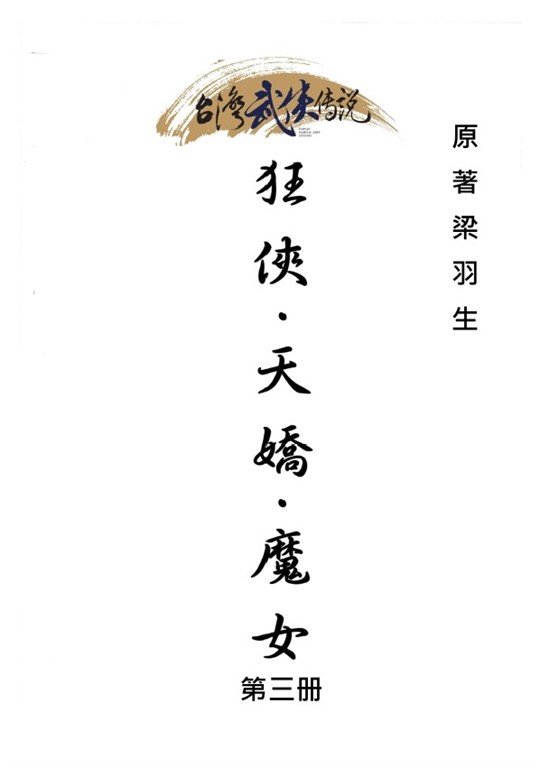 台灣武俠传説
原著梁羽生
狂俠・天嬌・魔女
第三册